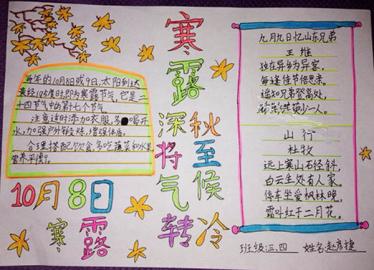 寒露
深秋将至
气候转冷
每年的10月8日或9日,太阳到达
黄经195度时即为寒露节气,它是二
十四节气中的第十七个节气
注意这时添加衣服,多喝开
水,加强户外锻炼,增强体质。
10月8日
寒露
九月九日忆山东兄弟
王维
独在异乡为异客,
每逢佳节倍思亲。
遥知兄弟登高处,
遍插茱萸少一人。
山行
杜牧
远上寒山石径斜,
白云生处有人家。
停车坐爱枫林晚,
霜叶红于二月花。
班级:三.四 姓名:赵彦捷